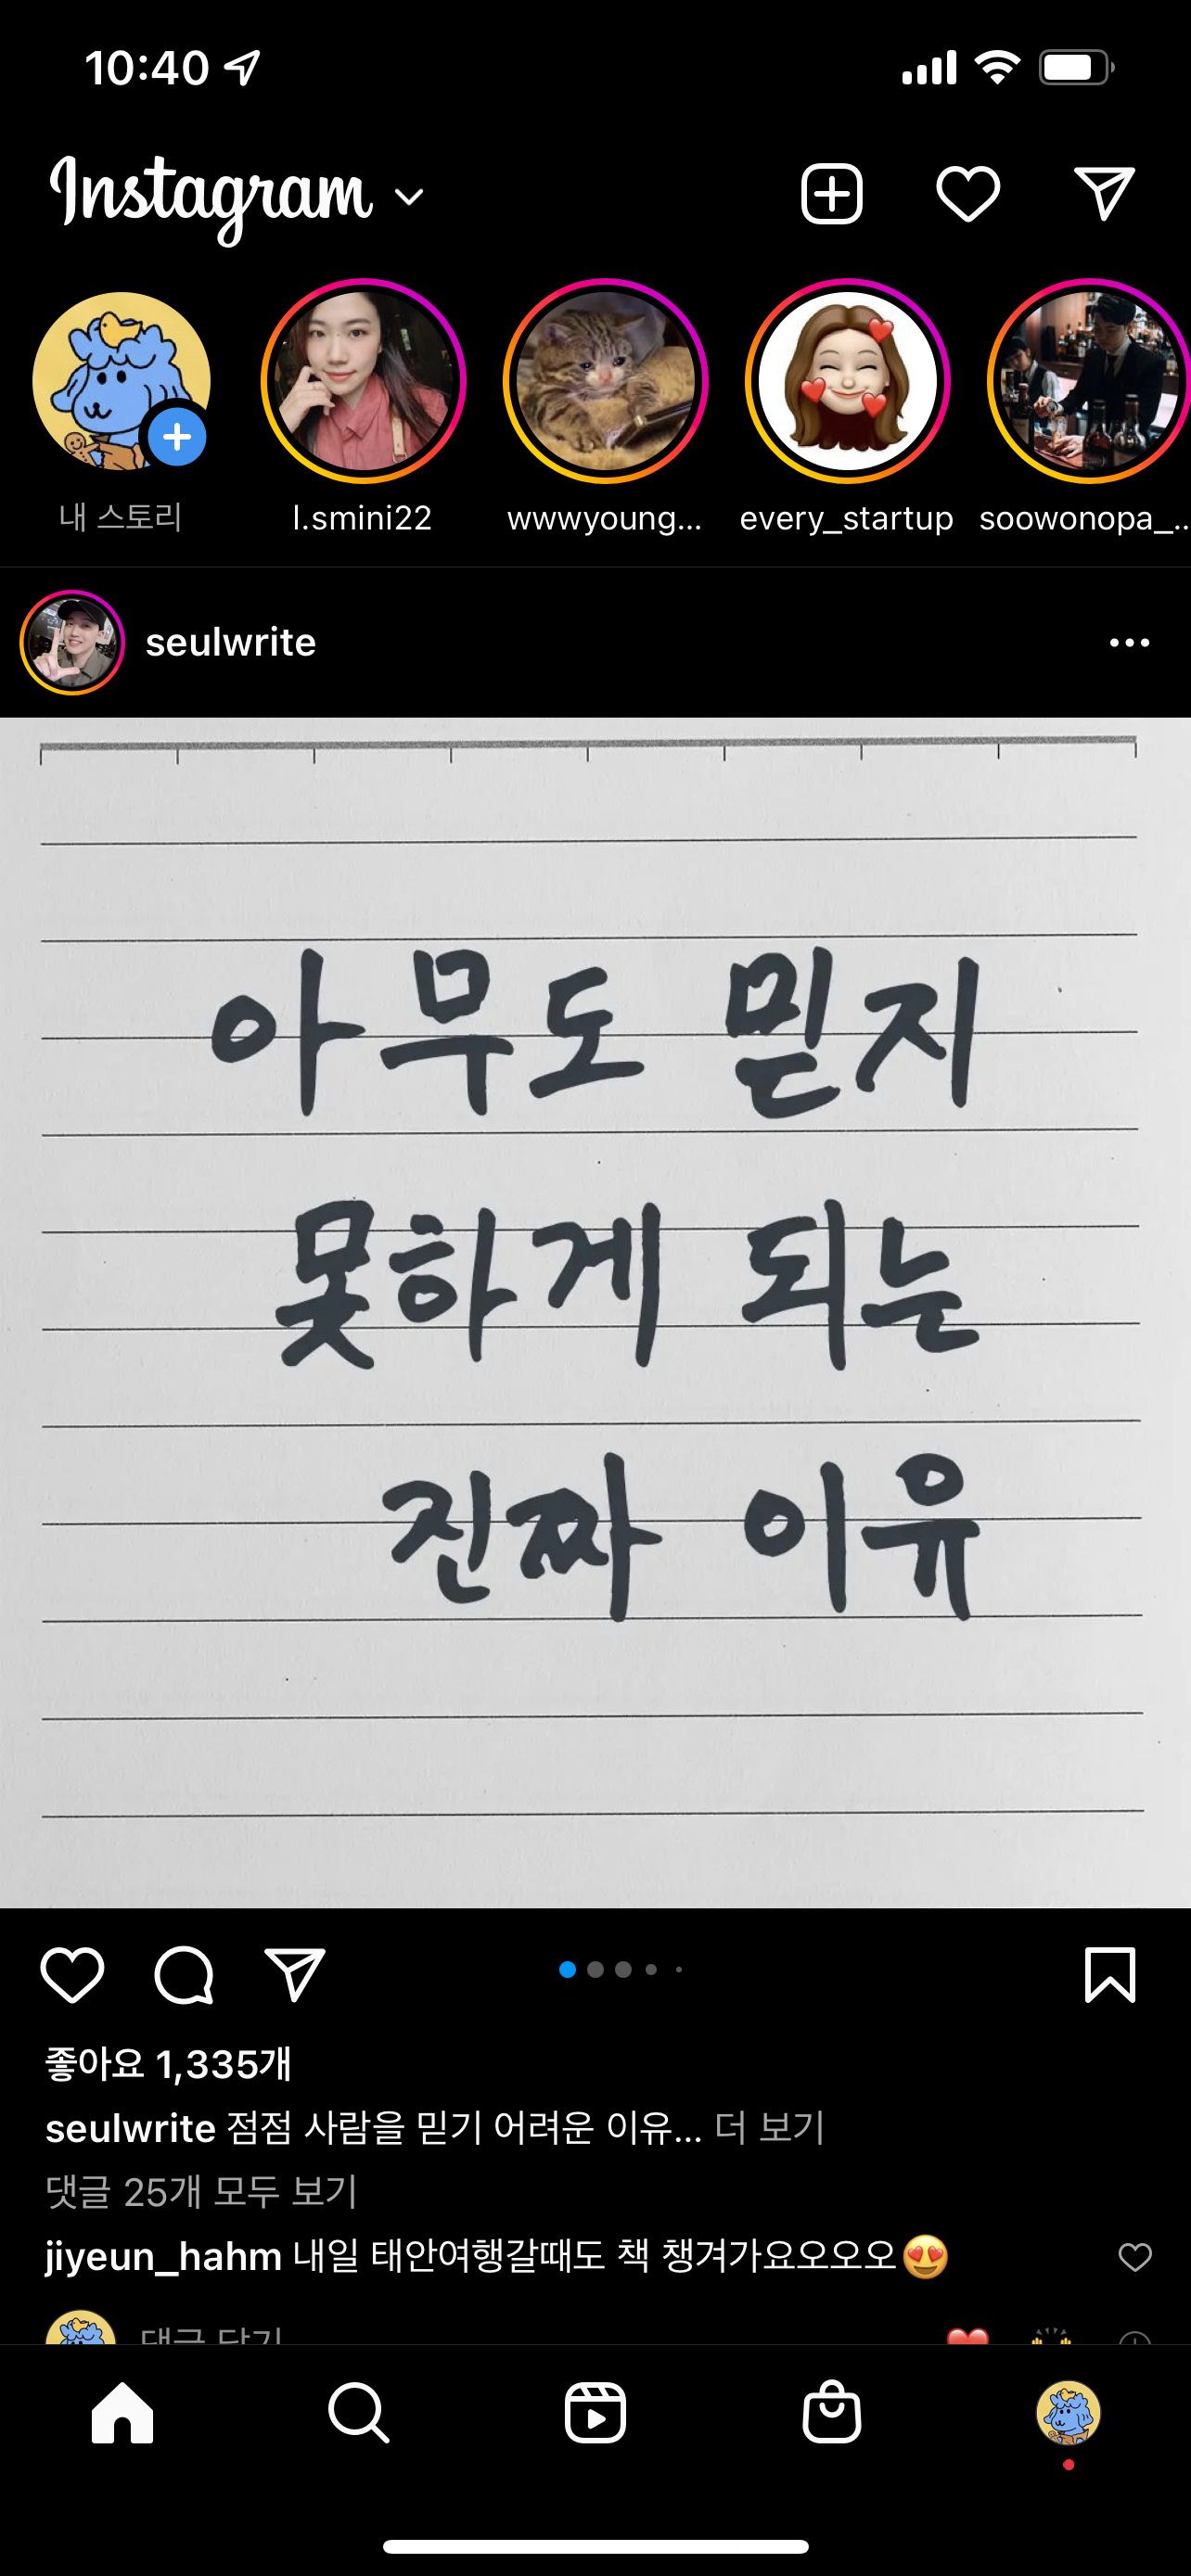 10:40
Instagram
내 스토리
l.smini22
wwwyoung...
every_startup
soowonopa_...
seulwrite
아무도 믿지
못하게 되는
진짜 이유
좋아요 1,335개
seulwrite 점점 사람을 믿기 어려운 이유... 더 보기
댓글 25개 모두 보기
jiyeun_hahm 내일 태안여행갈때도 책 챙겨가요오오오😍
댓글 달기